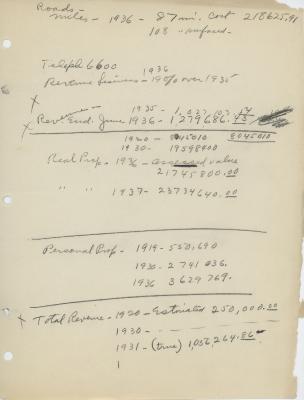 Roads -
miles - 1936 - 87 mi. Cost 218625.91
108 - surfaced -
Teleph 6600
1936
Revenue licenses - 19% over 1935
x
Revenue - 1935 - 1,027,107.
x Rev End. June 1936 - 1,279,686.43
1920 - 8045010 8045010
1930 - 19598400
Real Prop. - 1936 - assessed value
21745800.00
" " 1937 - 23734640.00
Personal Prop - 1919 - 550,690
1930 - 2741036.
1936 3629769.
x Total Revenue - 1920 - Estimated 250,000.00
1930 -
1931 - (true) 1,056,264.86
1